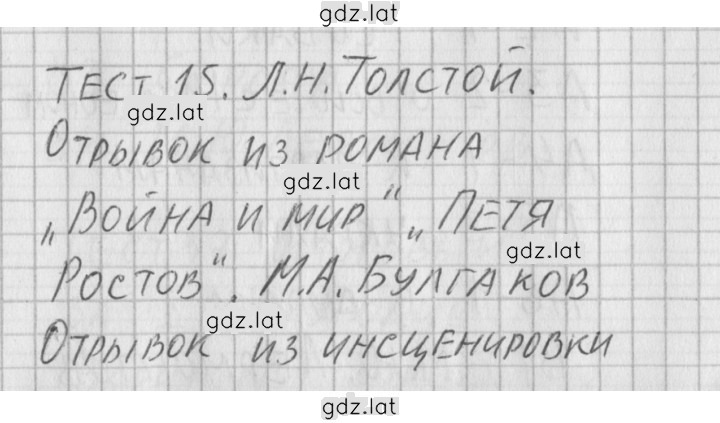 gdz.lat
Тест 15. Л.Н. Толстой.
gdz.lat
Отрывок из романа
gdz.lat
„Война и мир“ „Петя
gdz.lat
Ростов“. М.А. Булгаков
gdz.lat
Отрывок из инсценировки
gdz.lat